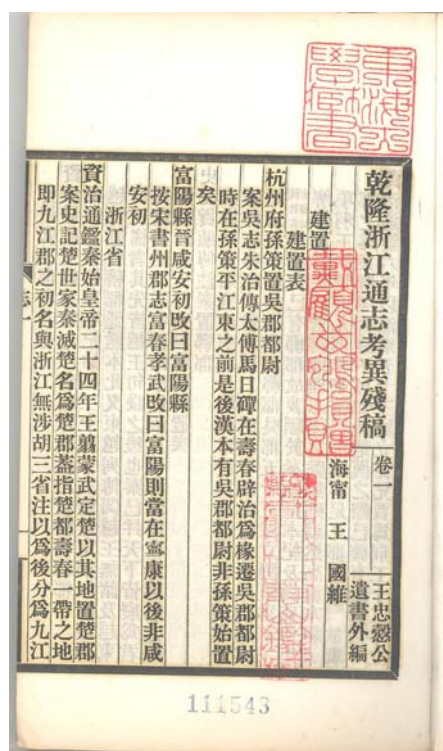 乾隆浙江通志考異殘稿 卷一 王忠慤公遺書外編
海甯 王 國維
建置
建置表
杭州府孫策置吳郡都尉
案吳志朱治傳太傅馬日磾在壽春辟治爲掾遷吳郡都尉
時在孫策平江東之前是後漢本有吳郡都尉非孫策始置
矣
富陽縣晉咸安初攺曰富陽縣
按宋書州郡志富春孝武攺曰富陽則當在甯康以後非咸
安初
浙江省
資治通鑑秦始皇帝二十四年王翦蒙武定楚以其地置楚郡
案史記楚世家秦滅楚名爲楚郡蓋指楚都壽春一帶之地
即九江郡之初名與浙江無涉胡三省注以爲後分爲九江
志一
111543